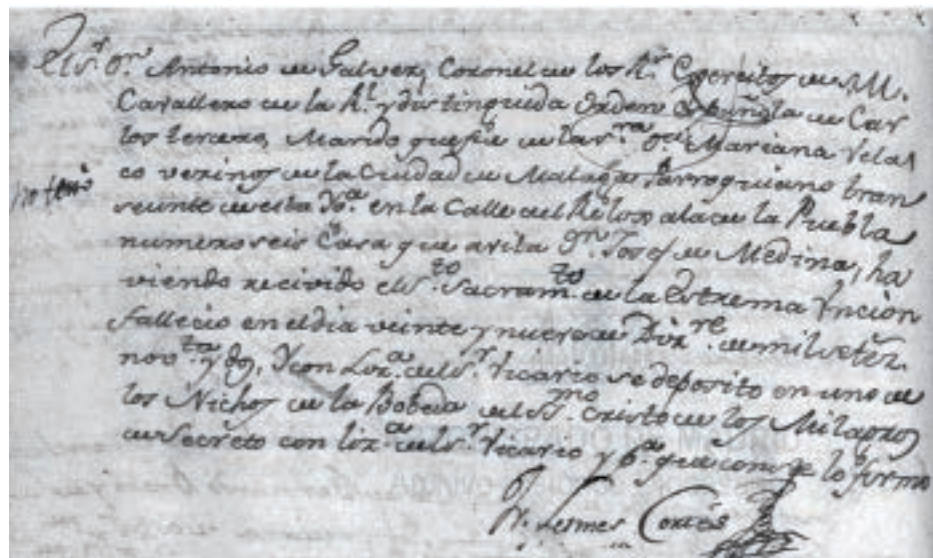 El S.r D.n Antonio de Galvez, Coronel de los R.s Egercitos de M.
Cavallero de la R.l y distinguida Orden Española de Car
los tercero, Marido que fue de la S.ra D.a Mariana Velas
co vezinos de la Ciudad de Malaga Parroquiano tran
seunte de esta Yg.a en la Calle del Relox a la de la Puebla
numero seis Casa que avita D.n Josef de Medina, ha
viendo recivido el S.to Sacram.to de la Extrema Uncion
fallecio en el dia veinte y nueve de Diz.re de mil setez.
nov.ta y dos, Y con Liz.a del S.r Vicario se deposito en uno de
los Nichos de la Bobeda del SS.mo Cristo de los Milagros
de Secreto con liz.a del S.r Vicario y p.a que conste lo firmo
Fr. Lesmes Cortés